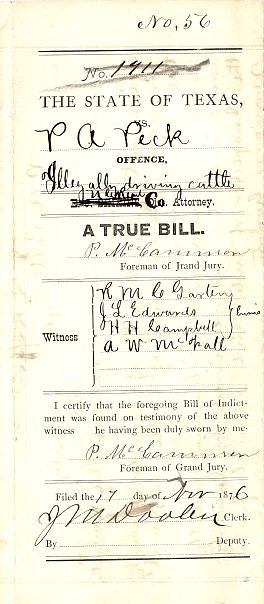 No, 56
No. 1911
THE STATE OF TEXAS,
VS.
P A Peck
OFFENCE,
Illegally driving cattle
Co. Attorney.
A TRUE BILL.
P. McCammon
Foreman of Jrand Jury.
R M C Gasten
J L Edwards
H H Campbell
Ennis
Witness
A W McFall
I certify that the foregoing Bill of Indict-
ment was found on testimony of the above
witness he having been duly sworn by me-
P. McCammon
Foreman of Grand Jury.
Filed the 17 day of Nov 1876
J M Doolen Clerk.
By Deputy.